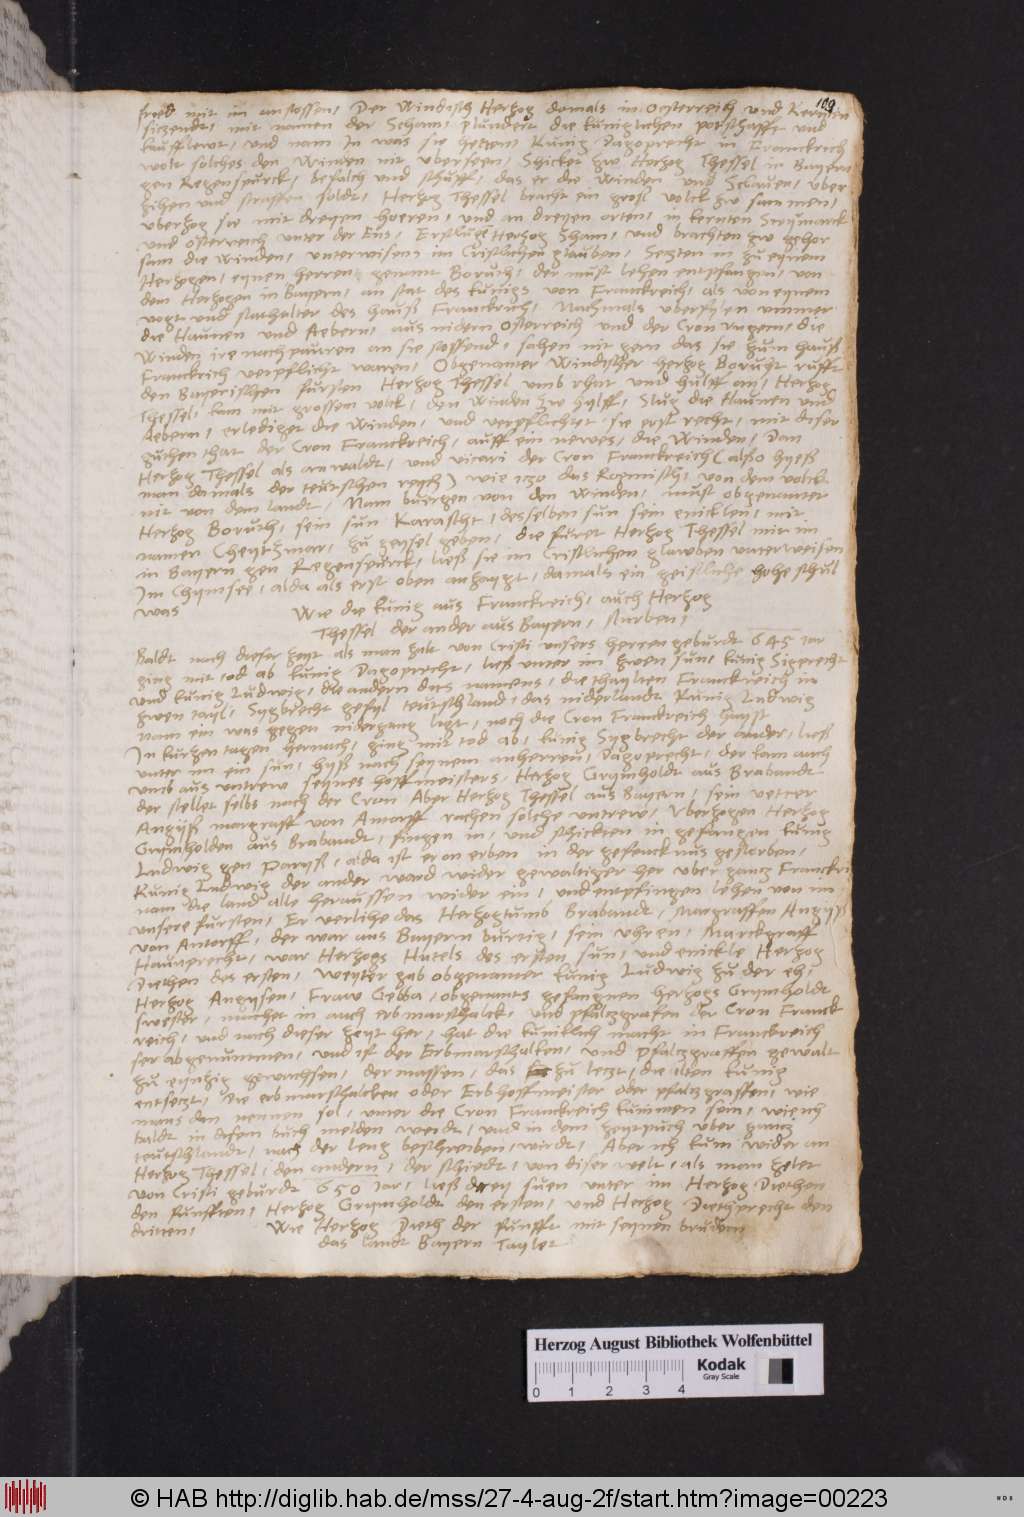 109
fried mit im anstossen, Der Windisch Herzog domals in Oesterreich und Kernten
siczendt, mit namen der Scham, plundert die kuniglichen potschafft und
kaufflewt, und nam in was sie hetten, Kunig Dagoprecht in Franckreich
wolt solches den Winden nit ubersehen, Schicket zw Herzog Thessel in Bayern
gen Regenspurck, befalch und schuff, das er die Winden und Sclauen, uber
zihen und straffen soldt, Herzog Thessel bracht ein grosl volck zw sammen,
uberzog sie mit dreyen heeren, und an dreyen orten, in kernten Steymarck
und osterreich unter der Ens, Erslueg Herzog Scham, und brachten zw gehor
sam die Winden, unterwisens im Cristlichen glauben, Sezten in zu eynem
Herzogen, eynen herren genant Boruth, der must lehen entpfangen, von
dem Herzogen in Bayern, an stat des kunigs von Franckreich, als von eynem
vogt und stathalter des hauß Franckrich, Nachmals uberfylen ummer
die Haunen und Aebern, aus nidern Osterreich und der Cron Ungern, die
Winden ire nachpauren an sie stossend, sahen nit gern das sie zum hauß
Franckrich verpflicht waren, Obgenanter Windischer herzog Borucht rufft
den Bayerischen fursten Herzog Thessel umb rhat und hulff an, Herzog
Thessel, kam mit grossem volck, den Winden zw hylff, Slug die Haunen und
Aebern, erlediget die Winden, und verpflichtet sie erst recht, mit diser
guthen that der Cron Franckreich, auff ein newes, die Winden, Dan
Herzog Thessel als anwaldt, und vicari der Cron Franckreich (also hyeß
man damals der teutschen reych) wie izo das Romisch, von dem volck
nit von dem landt, Nam buergen von den Winden, must obgenanter
Herzog Boruth, sein sun Karascht, desselben sun sein enicklen, mit
namen Cheytzmar, zu geysel geben, die furet Herzog Thessel mit im
in Bayern gen Regenspurck, ließ sie im Cristlichen glawben unterweisen
Im Chymsee, alda als erst oben anzaygt, damals ein geistliche hohe schul
was
Wie die kunig aus Franckreich, auch Herzog
Thessel der ander aus Bayern, sturben,
Baldt nach dieser zeyt als man zalt von Cristi unsers herren geburdt 645 iar
ging mit tod ab kunig Dagoprecht, ließ unter im zwen sun, kunig Sigprecht
und kunig Ludwig, die andern des namens, die thaylten Franckreich in
zwen tayl, Sygbrecht gefyl teutschland, das niderlandt Kunig Ludwig
nam ein was gegen nidergang ligt, noch die Cron Franckreich hayst
In kurzen tagen hernach, ging mit tod ab, kunig Sygbrecht der ander, ließ
unter im ein sun, hyß nach seynem anherren, Dagoprecht, der kam auch
umb aus untrew seynes hoffmeisters, Herzog Grymholdt aus Brabandt
der stellet selbs nach der Cron Aber Herzog Thessel aus Bayern, sein vetter
Angyß margraff von Antorff rachen solche untrew, Uberzogen Herzog
Grymholden aus Brabandt, fingen in, und schickten in gefangen kunig
Ludwig gen Paryß, alda ist er on erben in der gefencknus gestorben,
Kunig Ludwig der ander ward wider gewaltiger her uber gancz Franckri
nam die land alle heraussen wider ein, und entpfingen lehen von im
unsere fursten, Er verlihe das Herzogtumb Brabandt, Margraffen Angyß
von Antorff, der war aus Bayern burtig, sein uhren, Marckgraff
Haunprecht, war Herzogs Hutels des ersten sun, und enickle Herzog
Diethen des ersten, weyter gab obgenanter kunig Ludwig zu der eh,
Herzog Angysen, Fraw Gebba, obgenants gefangnen herzogs Grymholdt
swester, machet in auch erbmarschalck, und pfalczgrafen der Cron Franck
reich, und nach dieser zeyt her, hat die kuniklich macht in Franckreich
ser abgenummen, und ist der Erbmarschalken, und pfalczgraffen gewalt
zu eynzig gewachsen, dermassen, das zu leczt, die ilten kunig
entsetzt, die erbmarschalcken oder Erbhoffmeister oder pfalczgraffen, wie
mans dan nennen sol, unter die Cron Franckreich kummen sein, wie ich
baldt in disem buch melden werdt, und in dem zeytpuch uber gancz
teutschlandt, nach der leng beschreiben, wirdt, Aber ich kum wider an
Herzog Thessel, den andern, der schiedt, von diser welt, als man zelet
von Cristi geburdt 650 Jar, ließ drey suen unter im Herzog Diethen
den funfften, Herzog Grymholdt den ersten, und Herzog Diethprecht den
dritten,
Wie Herzog Dieth der funfft mit seynen brudern
das landt Bayern Taylet
Herzog August Bibliothek Wolfenbüttel
Kodak
Gray Scale
0 1 2 3 4
© HAB http://diglib.hab.de/mss/27-4-aug-2f/start.htm?image=00223